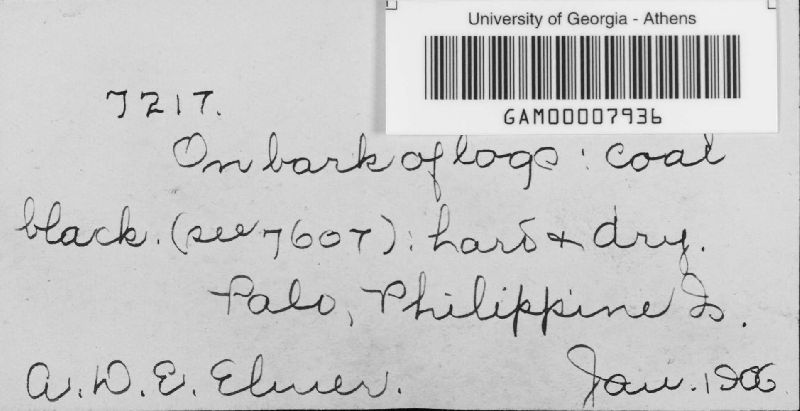 University of Georgia - Athens
GAM00007936
7217.
On bark of logs: coal
black. (see 7607): hard & dry.
Palo, Philippine Is.
A. D. E. Elmer. Jan. 1906